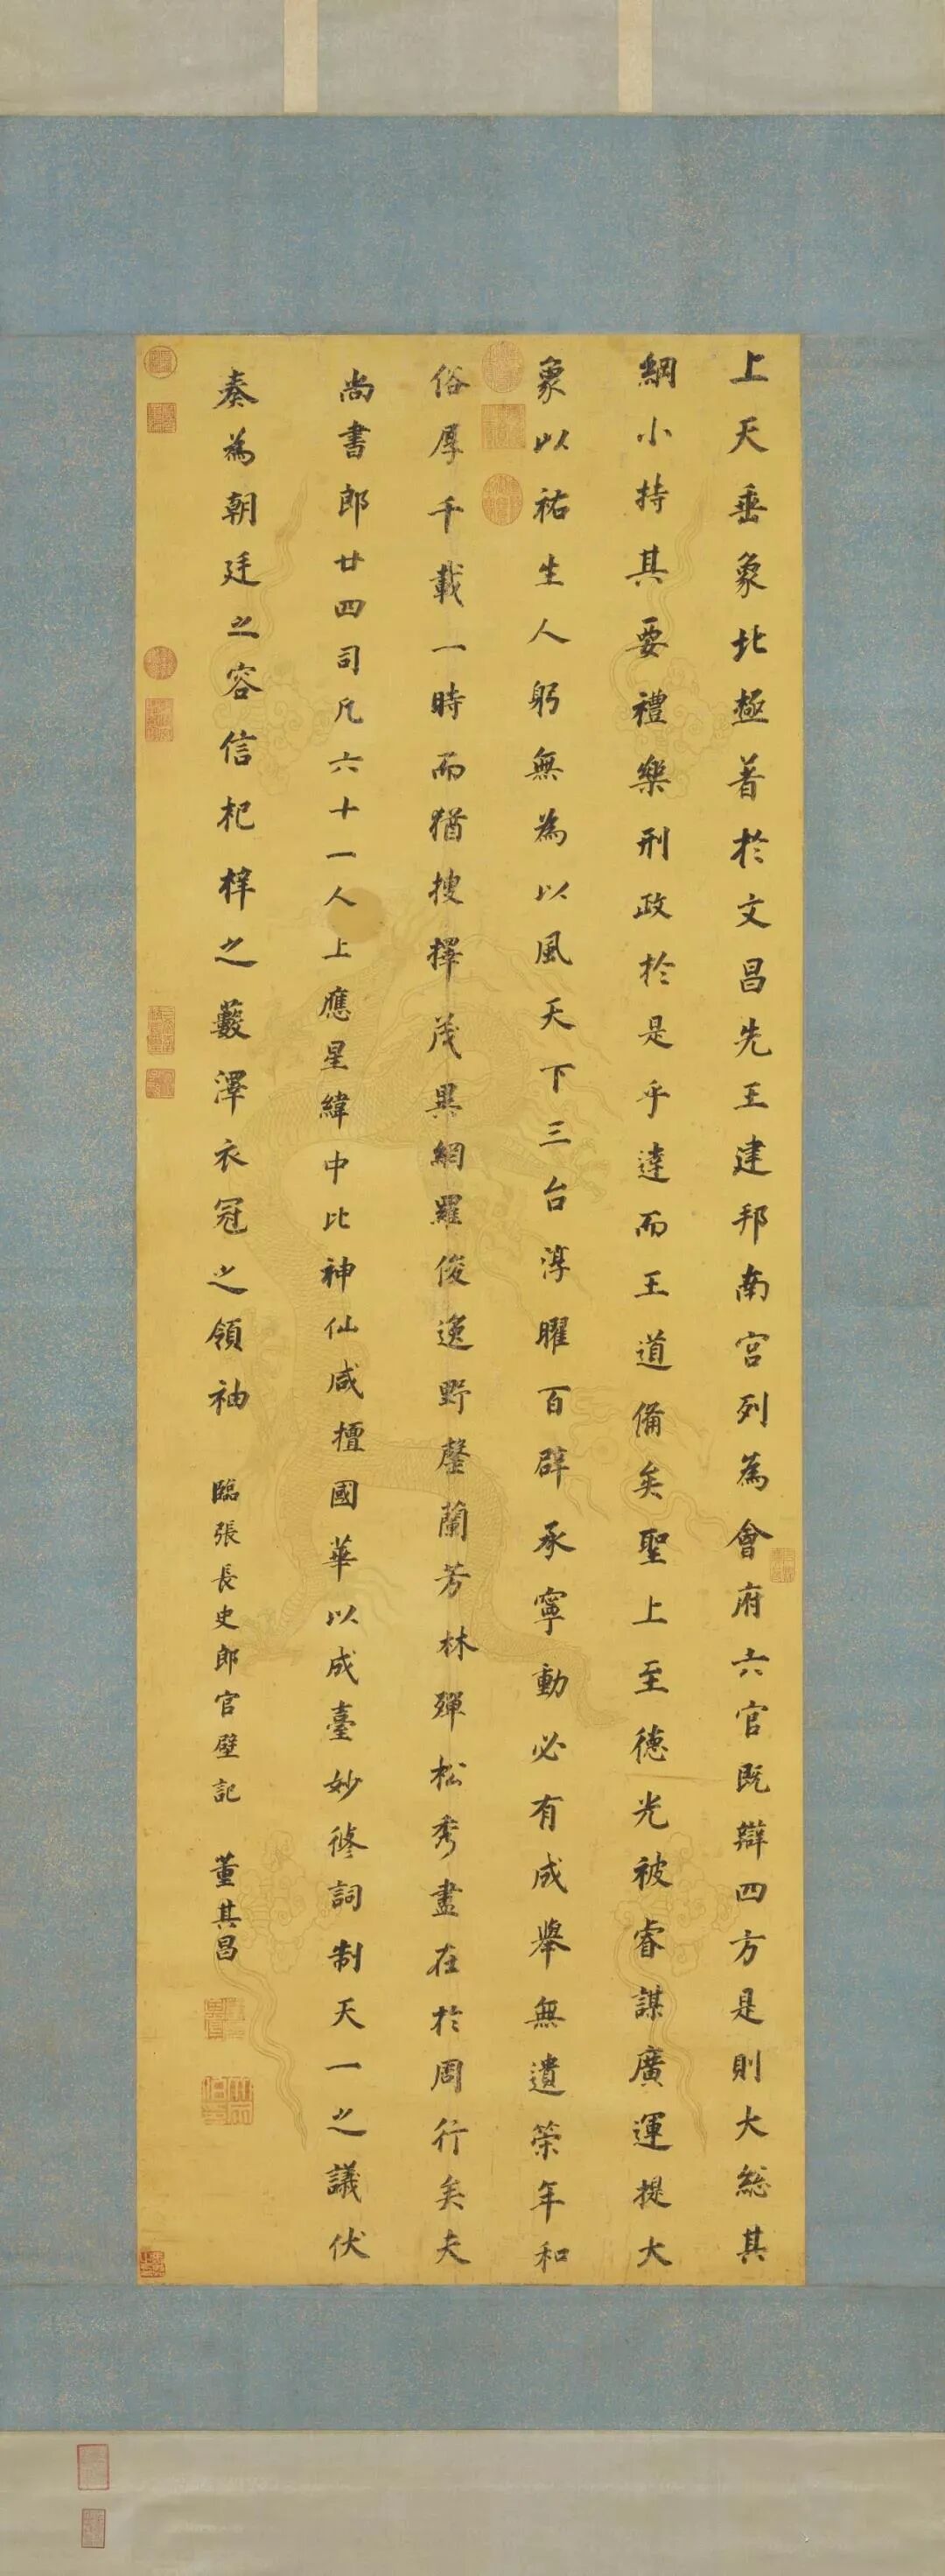 上天垂象北極著於文昌先王建邦南宮列為會府六官既辯四方是則大總其
綱小持其要禮樂刑政於是乎達而王道備矣聖上至德光被睿謀廣運提大
象以祐生人躬無為以風天下三台淳曜百辟承寧動必有成舉無遺榮年和
俗厚千載一時而猶搜擇茂異網羅俊逸野罄蘭芳林殫松秀盡在於周行矣夫
尚書郎廿四司凡六十一人上應星緯中比神仙咸擅國華以成臺妙修詞制天一之議伏
奏為朝廷之容信杞梓之藪澤衣冠之領袖
臨張長史郎官壁記
董其昌